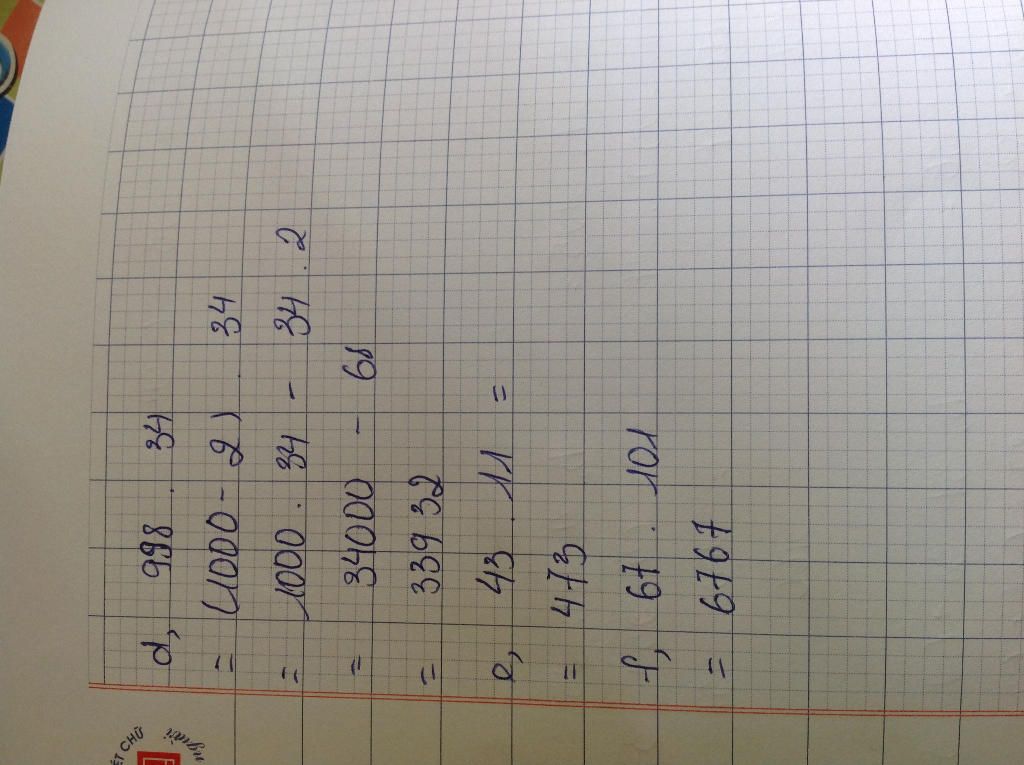 d, 998 . 34
= (1000 - 2) . 34
= 1000 . 34 - 34 . 2
= 34000 - 68
= 33932
e, 43 . 11 =
= 473
f, 67 . 101
= 6767
ẾT CHỮ
người